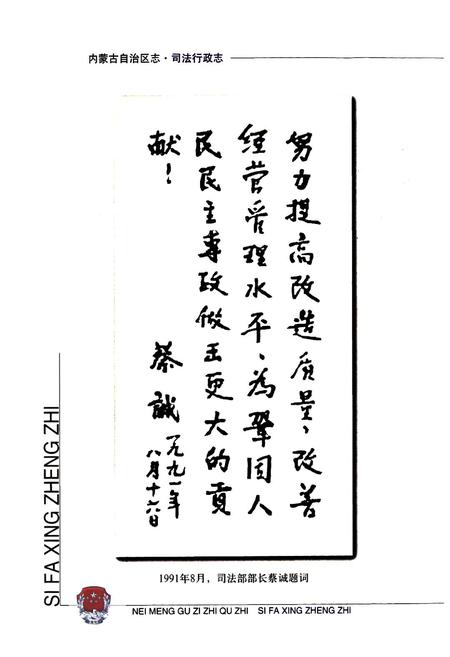 内蒙古自治区志·司法行政志
努力提高改造质量，改善
经营管理水平、为巩固人
民民主专政做出更大的贡
献！
蔡诚
一九九一年
八月十六日
1991年8月，司法部部长蔡诚题词
SI FA XING ZHENG ZHI
NEI MENG GU ZI ZHI QU ZHI SI FA XING ZHENG ZHI